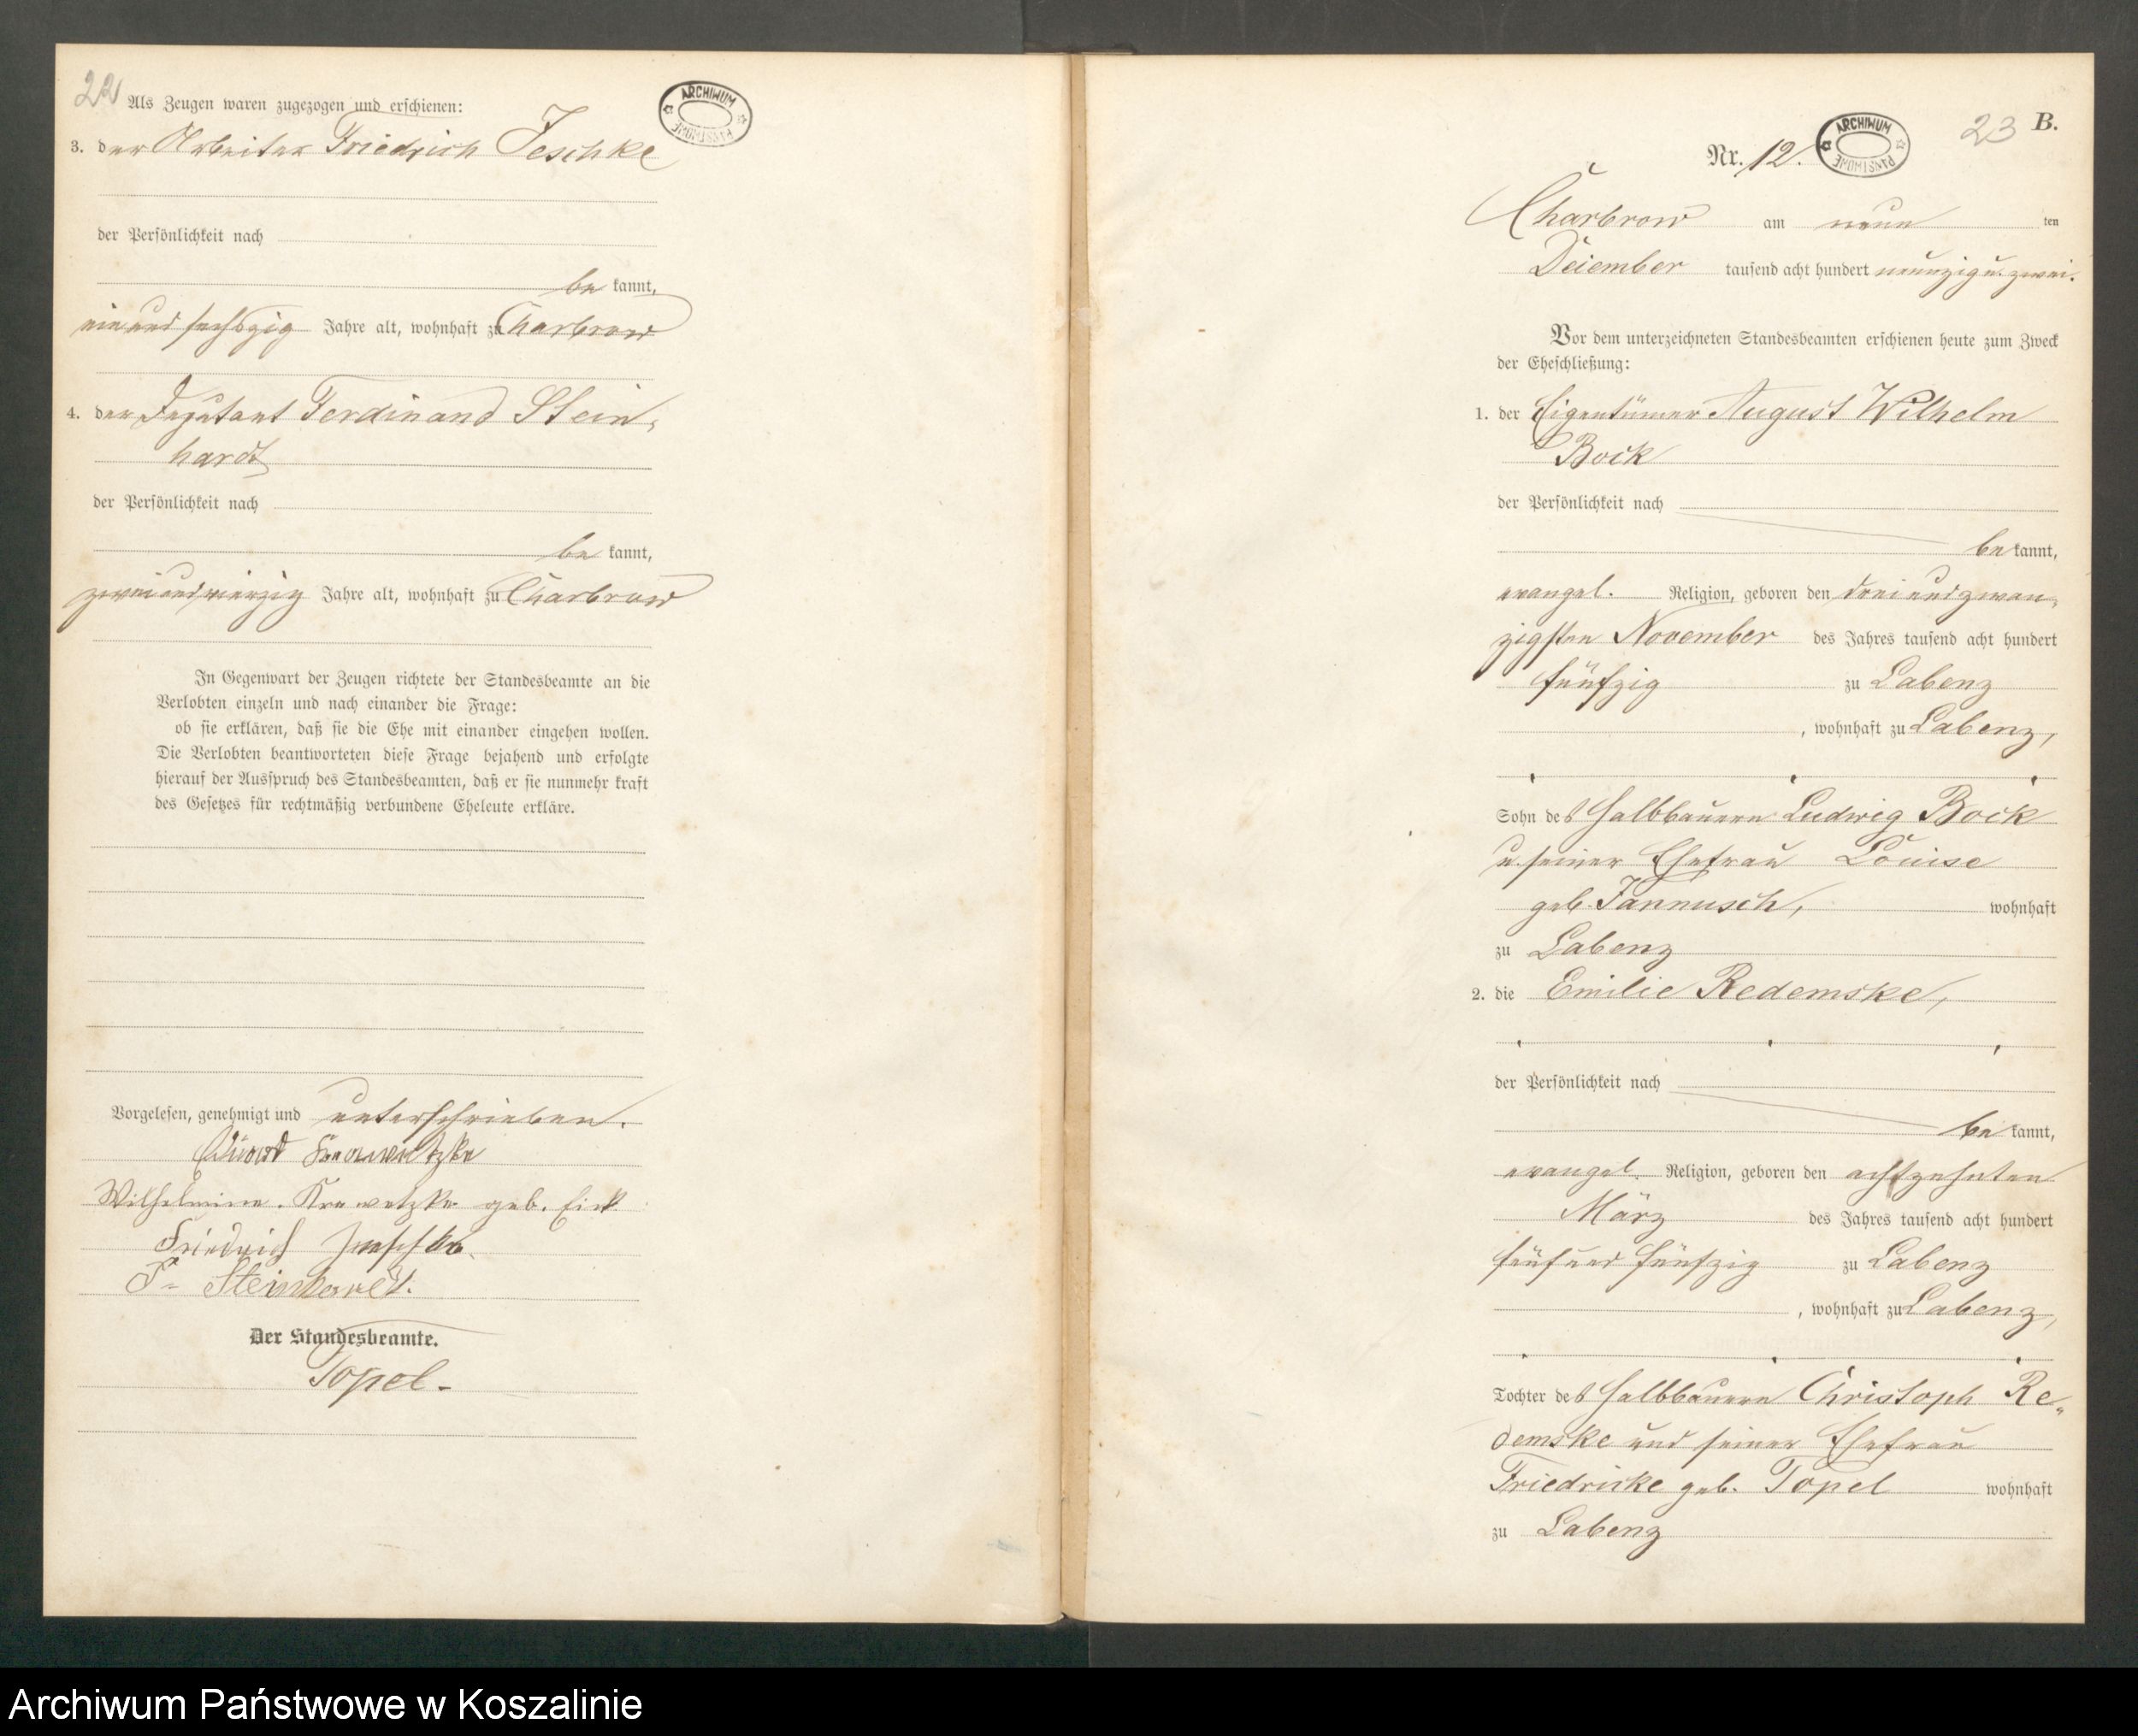 22
Als Zeugen waren zugezogen und erschienen:
ARCHIWUM PAŃSTWOWE
3. der Arbeiter Friedrich Jeschke
der Persönlichkeit nach
be kannt,
ein und sechszig Jahre alt, wohnhaft zu Charbrow
4. der Deputant Ferdinand Stein-
hardt
der Persönlichkeit nach
be kannt,
zwei und vierzig Jahre alt, wohnhaft zu Charbrow
In Gegenwart der Zeugen richtete der Standesbeamte an die
Verlobten einzeln und nach einander die Frage:
ob sie erklären, daß sie die Ehe mit einander eingehen wollen.
Die Verlobten beantworteten diese Frage bejahend und erfolgte
hierauf der Ausspruch des Standesbeamten, daß er sie nunmehr kraft
des Gesetzes für rechtmäßig verbundene Eheleute erkläre.
Vorgelesen, genehmigt und unterschrieben.
Wilhelmine Krawetzke geb.
Friedrich Jeschke
F. Steinhardt.
Der Standesbeamte.
Topel.
23 B.
Nr. 12.
ARCHIWUM PAŃSTWOWE
Charbrow am neun ten
Dezember tausend acht hundert neunzig u. zwei.
Vor dem unterzeichneten Standesbeamten erschienen heute zum Zweck
der Eheschließung:
1. der Eigentümer August Wilhelm
Bock
der Persönlichkeit nach
be kannt,
evangel. Religion, geboren den drei und zwan-
zigsten November des Jahres tausend acht hundert
fünfzig zu Labenz
, wohnhaft zu Labenz,
Sohn des Halbbauern Ludwig Bock
u. seiner Ehefrau Louise
geb. Jannusch, wohnhaft
zu Labenz
2. die Emilie Redemske,
der Persönlichkeit nach
be kannt,
evangel. Religion, geboren den achtzehnten
März des Jahres tausend acht hundert
fünf und fünfzig zu Labenz
, wohnhaft zu Labenz,
Tochter des Halbbauern Christoph Re-
demske und seiner Ehefrau
Friedricke geb. Topel wohnhaft
zu Labenz
Archiwum Państwowe w Koszalinie